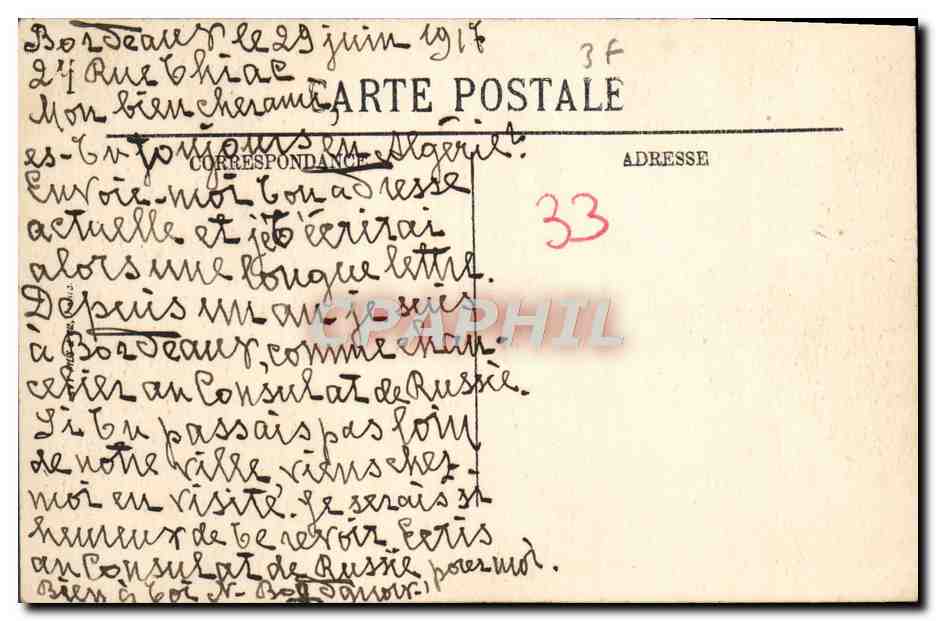 Bordeaux le 29 juin 1917
3F
27 Rue Thiac
Mon bien cher ami,
CARTE POSTALE
es-tu toujours en Algérie?
CORRESPONDANCE
ADRESSE
Envoie-moi ton adresse
33
actuelle et je t'écrirai
alors une longue lettre.
Depuis un an je suis
CPAPHIL
à Bordeaux, comme chan-
celier au Consulat de Russie.
Si tu passais pas loin
de notre ville, viens chez-
moi en visite. Je serais si
heureux de te revoir. Ecris
au Consulat de Russie pour moi.
Bien à toi N.